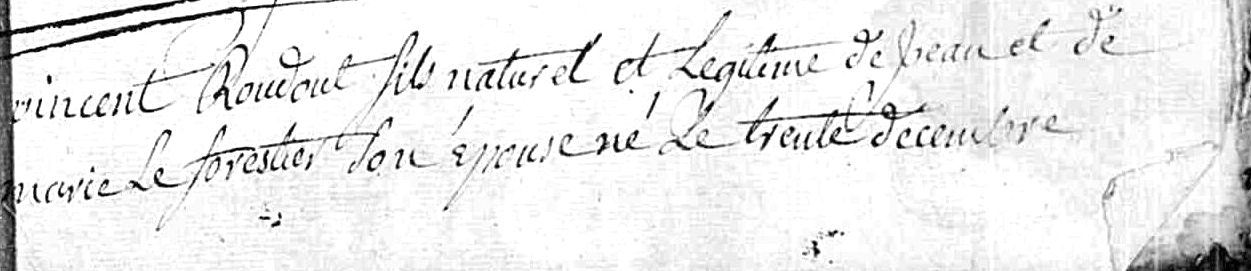 vincent Roudout fils naturel et Legitime de jean et de
marie Le forestier son épouse né Le trente decembre